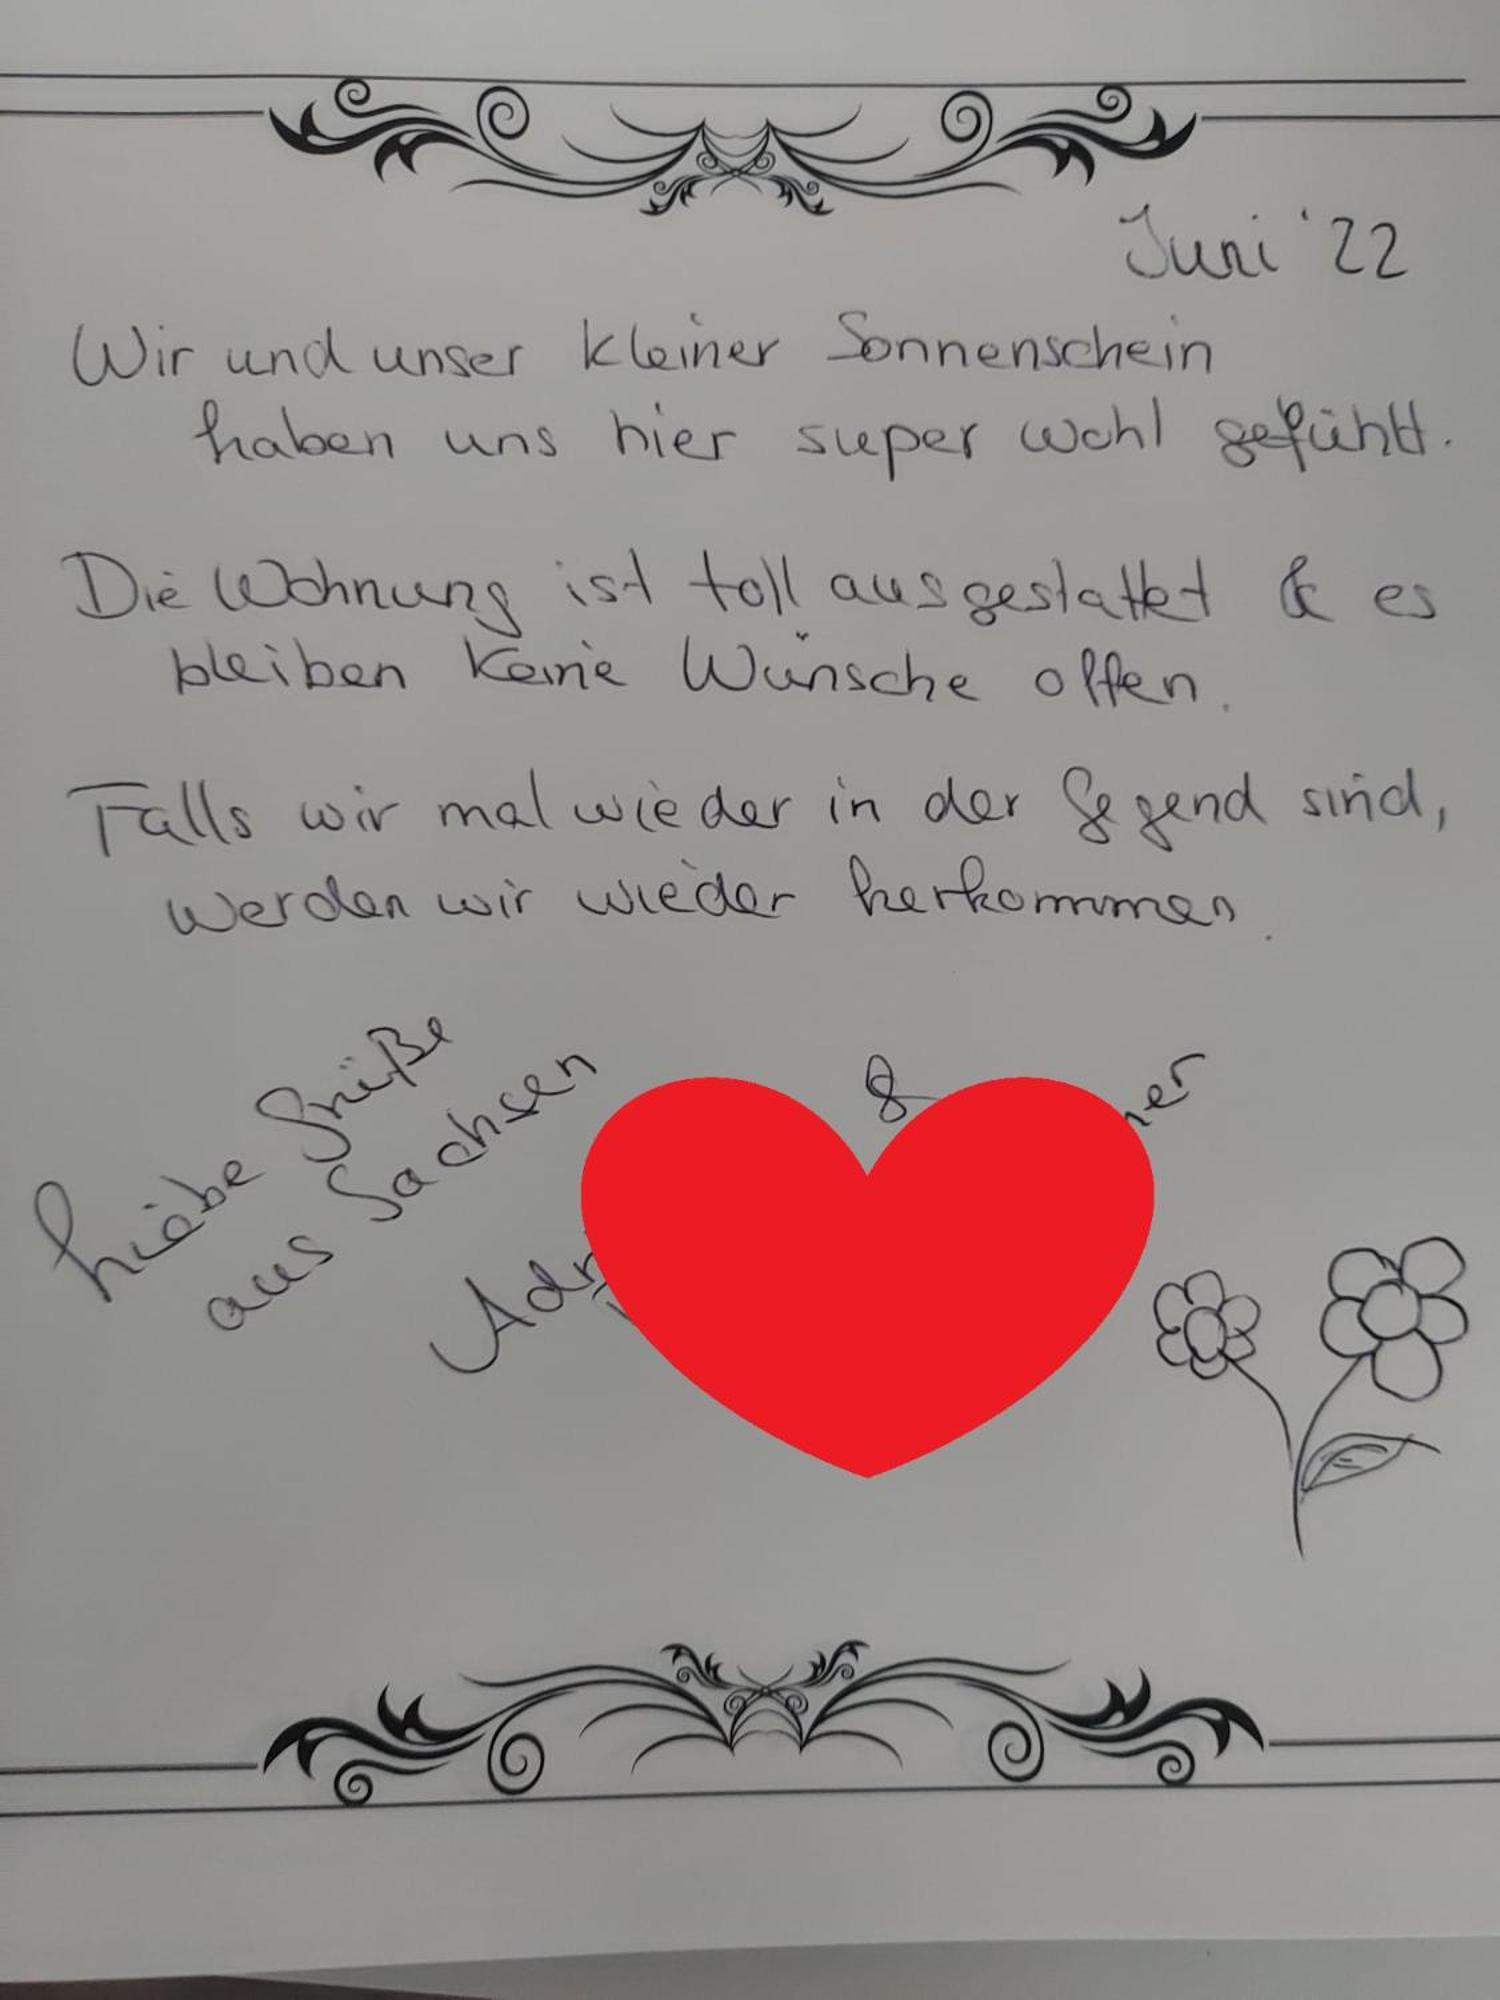 Juni '22
Wir und unser kleiner Sonnenschein
haben uns hier super wohl gefühlt.
Die Wohnung ist toll ausgestattet & es
bleiben keine Wünsche offen.
Falls wir mal wieder in der Gegend sind,
werden wir wieder herkommen.
Liebe Grüße
aus Sachsen
&